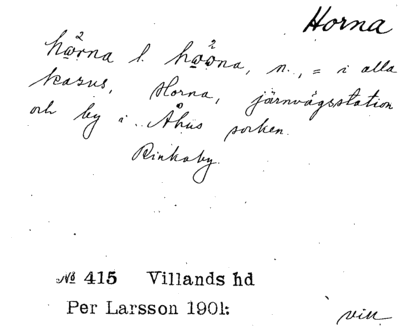 Horna
hörna l. höəna, n., = i alla
kasus, Horna, järnvägsstation
och by i Åhus socken.
Rinkaby.
№ 415 Villands hd
Per Larsson 1901.
vill